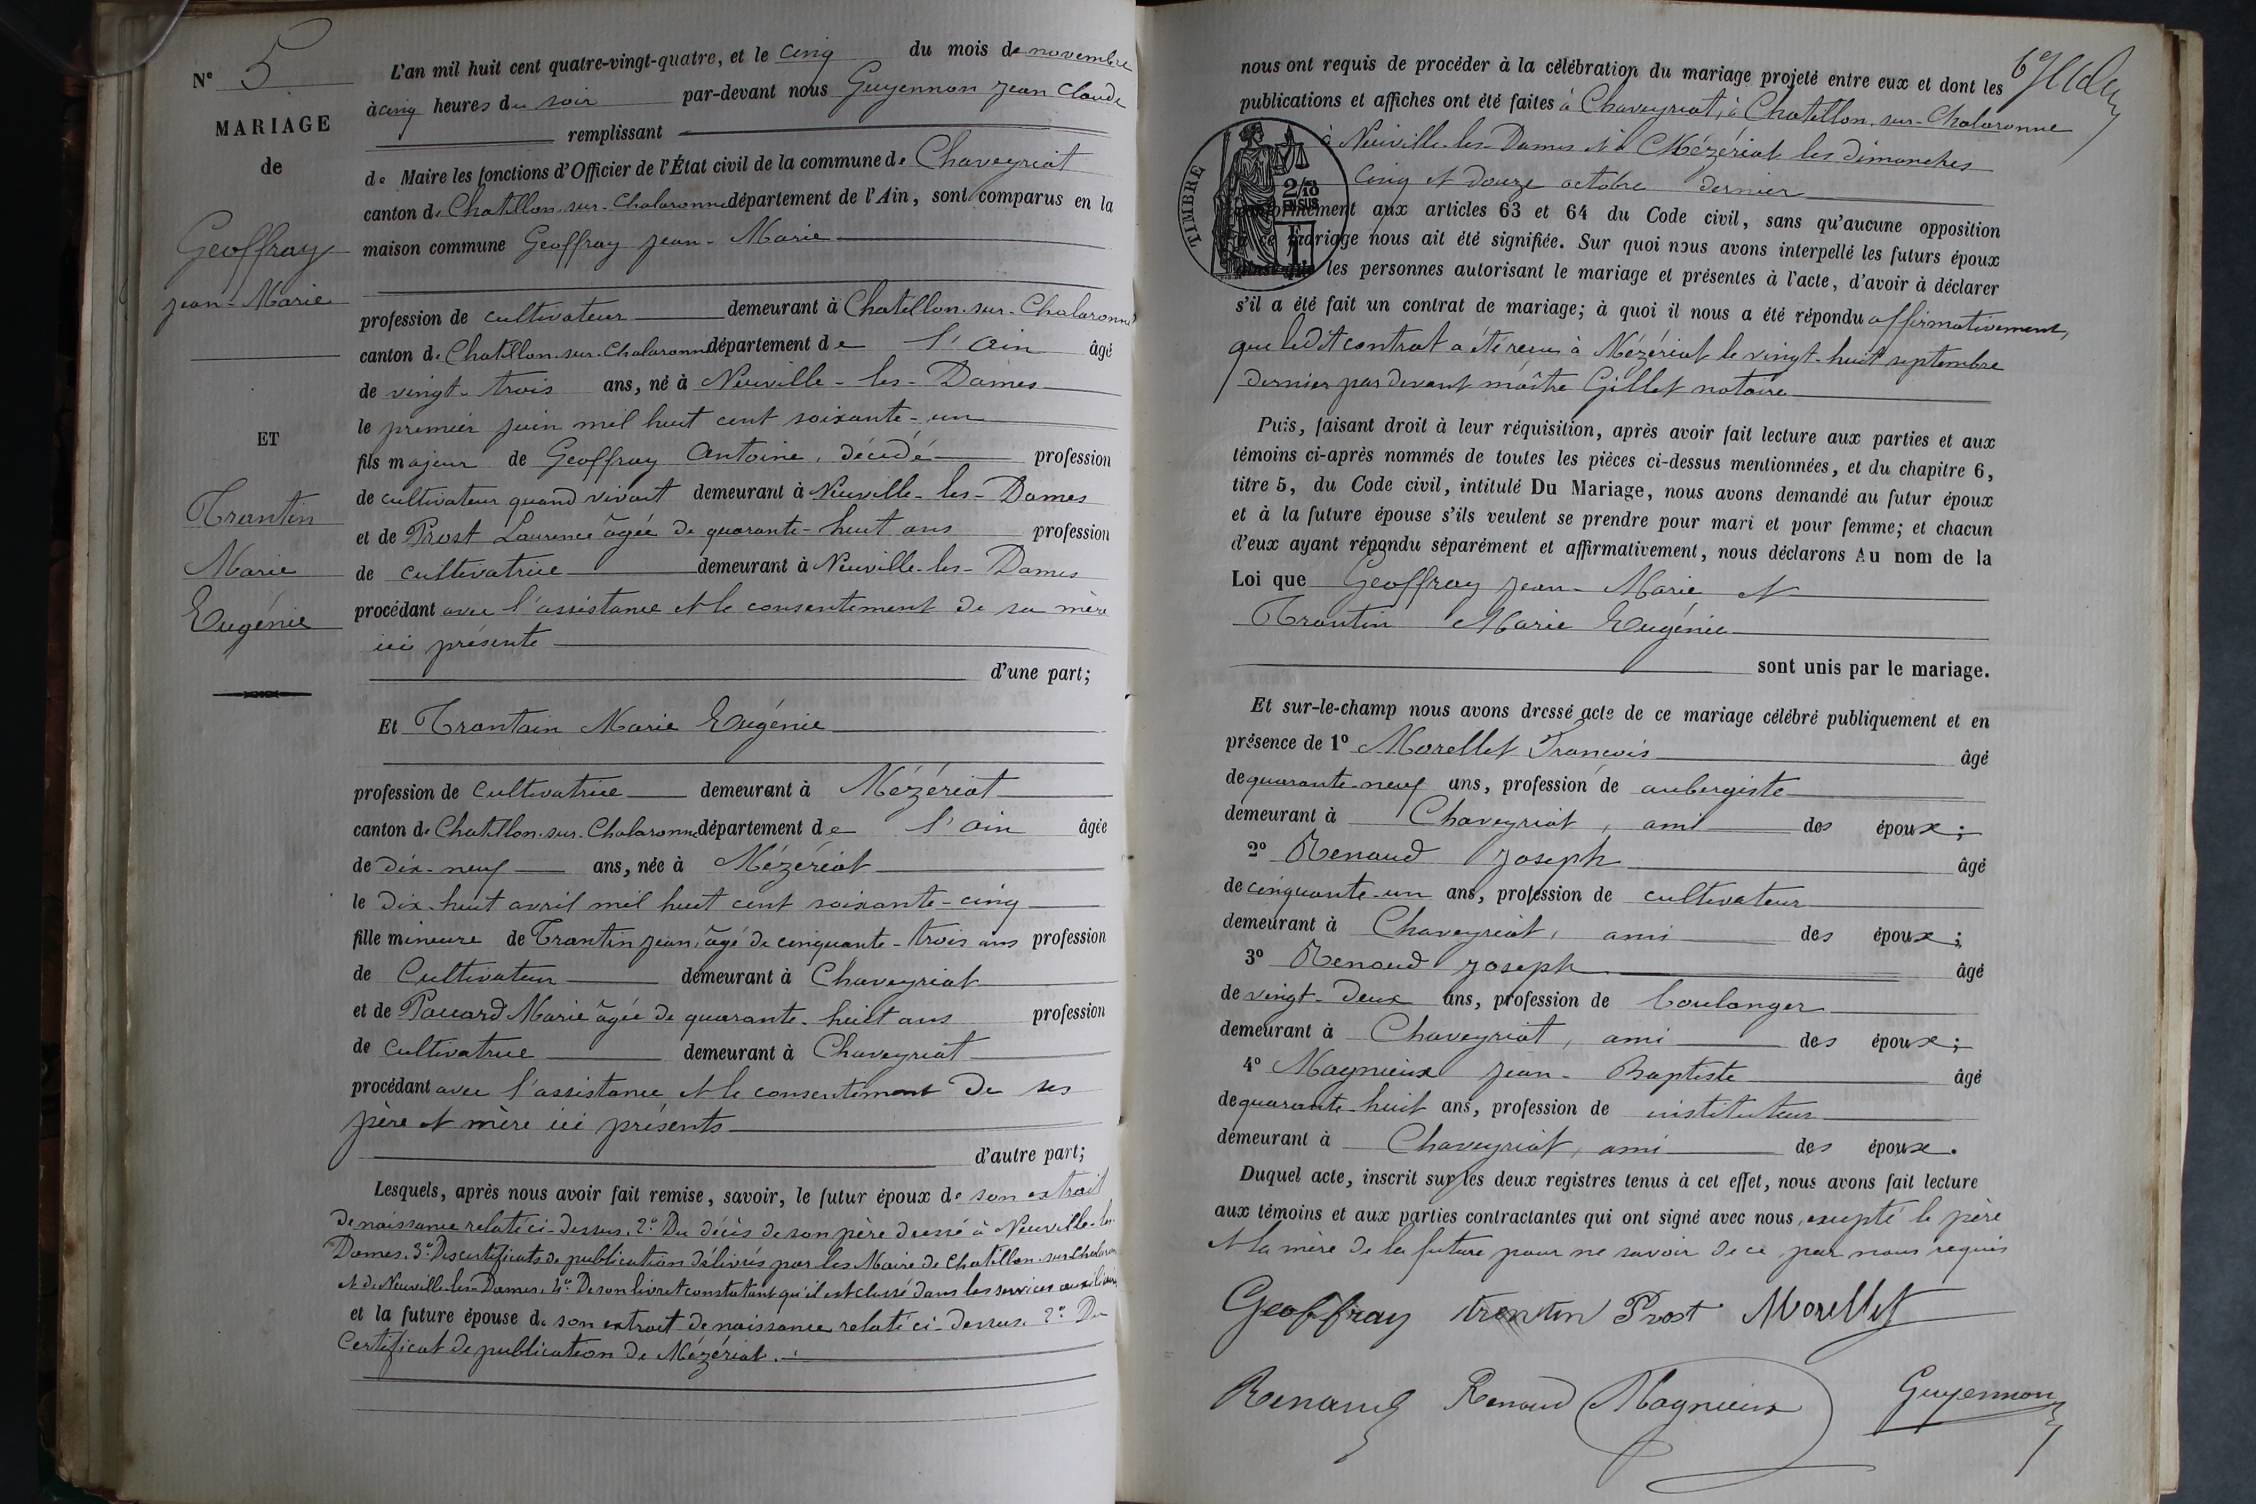 N° 5
MARIAGE
de
Geoffray
Jean-Marie
ET
Trantin
Marie
Eugénie
L'an mil huit cent quatre-vingt-quatre, et le cinq du mois de novembre
à cinq heures du soir par-devant nous Guyennon Jean Claude
remplissant
de Maire les fonctions d'Officier de l'État civil de la commune de Chaveyriat
canton de Chatillon-sur-Chalaronne département de l'Ain, sont comparus en la
maison commune Geoffray Jean-Marie
profession de cultivateur demeurant à Chatillon-sur-Chalaronne
canton de Chatillon-sur-Chalaronne département de l'Ain âgé
de vingt-trois ans, né à Neuville-les-Dames
le premier juin mil huit cent soixante-un
fils majeur de Geoffray Antoine, décédé profession
de cultivateur quand vivant demeurant à Neuville-les-Dames
et de Prost Laurence âgée de quarante-huit ans profession
de cultivatrice demeurant à Neuville-les-Dames
procédant avec l'assistance et le consentement de sa mère
ici présente
d'une part;
Et Trantain Marie Eugénie
profession de cultivatrice demeurant à Mézériat
canton de Chatillon-sur-Chalaronne département de l'Ain âgée
de dix-neuf ans, née à Mézériat
le dix-huit avril mil huit cent soixante-cinq
fille mineure de Trantin Jean, âgé de cinquante-trois ans profession
de cultivateur demeurant à Chaveyriat
et de Pauard Marie âgée de quarante-huit ans profession
de cultivatrice demeurant à Chaveyriat
procédant avec l'assistance et le consentement de ses
père et mère ici présents
d'autre part;
Lesquels, après nous avoir fait remise, savoir, le futur époux de son extrait
de naissance relaté ci-dessus. 2° Du décès de son père dressé à Neuville-les-
Dames. 3° Des certificats de publication délivrés par les Maire de Chatillon-sur-Chalaronne
et de Neuville-les-Dames. 4° De son livret constatant qu'il est classé dans les services auxiliaires
et la future épouse de son extrait de naissance relaté ci-dessus. 2° Du
Certificat de publication de Mézériat.
nous ont requis de procéder à la célébration du mariage projeté entre eux et dont les
publications et affiches ont été faites à Chaveyriat, à Chatillon-sur-Chalaronne
à Neuville-les-Dames et à Mézériat les dimanches
cinq et douze octobre dernier
TIMBRE
2/10
EN SUS
conformément aux articles 63 et 64 du Code civil, sans qu'aucune opposition
à ce mariage nous ait été signifiée. Sur quoi nous avons interpellé les futurs époux
ainsi que les personnes autorisant le mariage et présentes à l'acte, d'avoir à déclarer
s'il a été fait un contrat de mariage; à quoi il nous a été répondu affirmativement,
que ledit contrat a été reçu à Mézériat le vingt-huit septembre
dernier par devant maître Gillet notaire
Puis, faisant droit à leur réquisition, après avoir fait lecture aux parties et aux
témoins ci-après nommés de toutes les pièces ci-dessus mentionnées, et du chapitre 6,
titre 5, du Code civil, intitulé Du Mariage, nous avons demandé au futur époux
et à la future épouse s'ils veulent se prendre pour mari et pour femme; et chacun
d'eux ayant répondu séparément et affirmativement, nous déclarons Au nom de la
Loi que Geoffray Jean-Marie et
Trantin Marie Eugénie
sont unis par le mariage.
Et sur-le-champ nous avons dressé acte de ce mariage célébré publiquement et en
présence de 1° Morellet François âgé
de quarante-neuf ans, profession de aubergiste
demeurant à Chaveyriat, ami des époux;
2° Renaud Joseph âgé
de cinquante-un ans, profession de cultivateur
demeurant à Chaveyriat, ami des époux;
3° Renaud Joseph âgé
de vingt-deux ans, profession de boulanger
demeurant à Chaveyriat, ami des époux;
4° Magnieux Jean-Baptiste âgé
de quarante-huit ans, profession de instituteur
demeurant à Chaveyriat, ami des époux.
Duquel acte, inscrit sur les deux registres tenus à cet effet, nous avons fait lecture
aux témoins et aux parties contractantes qui ont signé avec nous, excepté le père
et la mère de la future pour ne savoir de ce par nous requis
Geoffray trentin Prost Morellet
Renaud Renaud Magnieux Guyennon